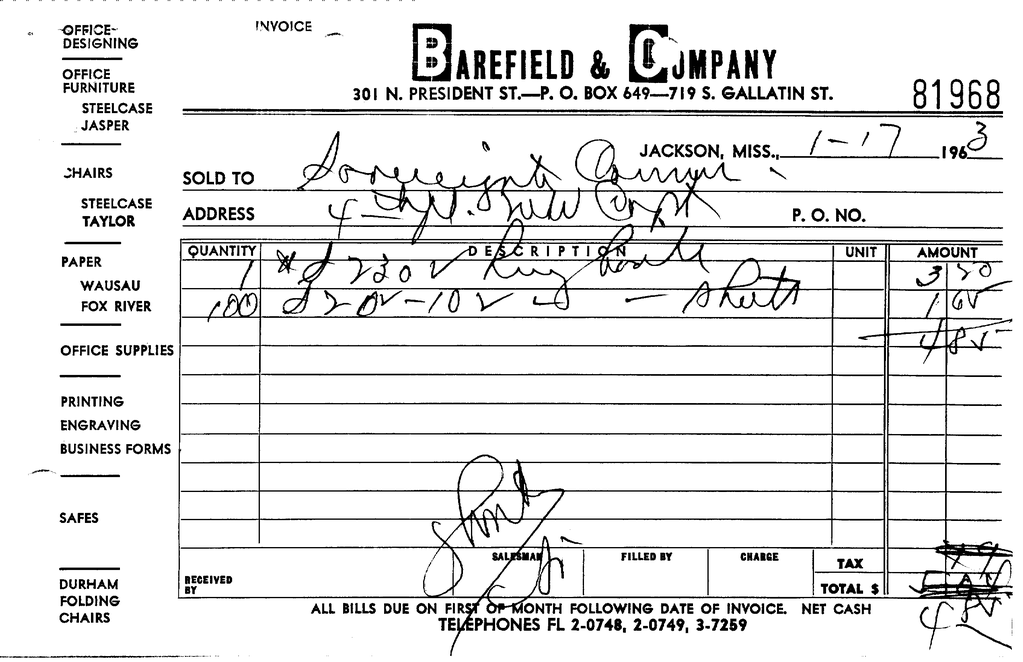 INVOICE
BAREFIELD & COMPANY
301 N. PRESIDENT ST.—P. O. BOX 649—719 S. GALLATIN ST.
81968
JACKSON, MISS., 1-17 1963
SOLD TO Sovereignty Comm.
ADDRESS 4 Bldg.
P. O. NO.
QUANTITY DESCRIPTION UNIT AMOUNT
1 230 Ring 3 20
100 - sheets 1 65
4 85
RECEIVED BY
SALESMAN FILLED BY CHARGE TAX
TOTAL $ 4 85
ALL BILLS DUE ON FIRST OF MONTH FOLLOWING DATE OF INVOICE. NET CASH
TELEPHONES FL 2-0748, 2-0749, 3-7259
OFFICE-
DESIGNING
OFFICE
FURNITURE
STEELCASE
JASPER
CHAIRS
STEELCASE
TAYLOR
PAPER
WAUSAU
FOX RIVER
OFFICE SUPPLIES
PRINTING
ENGRAVING
BUSINESS FORMS
SAFES
DURHAM
FOLDING
CHAIRS